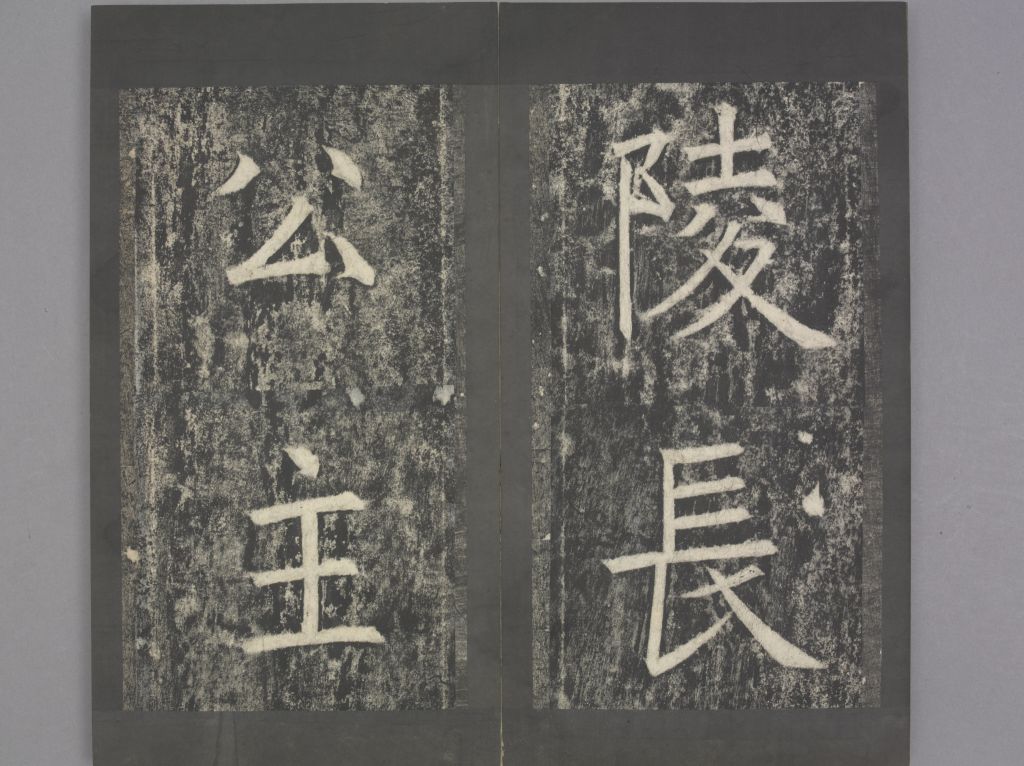 陵長
公主